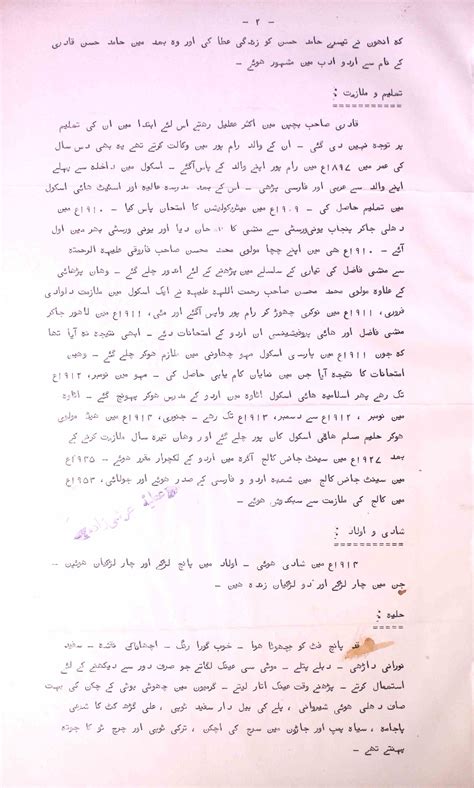 - ۲ -
کہ انھوں نے تیسرے حامد حسن کو زندگی عطا کی اور وہ بعد میں حامد حسن قادری
کے نام سے اردو ادب میں مشہور ھوئے -
تعلیم و ملازمت :
قادری صاحب بچپن میں اکثر علیل رھتے اس لئے ابتدا میں ان کی تعلیم
پر توجہ نہیں دی گئی - ان کے والد رام پور میں وکالت کرتے تھے یہ بھی دس سال
کی عمر میں ۱۸۹۷ع میں رام پور اپنے والد کے پاس آگئے - اسکول میں داخلہ سے پہلے
اپنے والد سے عربی اور فارسی پڑھی - اس کے بعد مدرسہ عالیہ اور اسٹیٹ ھائی اسکول
میں تعلیم حاصل کی - ۱۹۰۹ع میں میٹریکولیشن کا امتحان پاس کیا - ۱۹۱۰ع میں
دھلی جاکر پنجاب یونیورسٹی سے منشی کا امتحان دیا اور یونی ورسٹی بھر میں اول
آئے - ۱۹۱۰ع ھی میں اپنے چچا مولوی محمد محسن صاحب فاروقی علیہہ الرحمتہ
سے منشی فاضل کی تیاری کے سلسلے میں پڑھنے کے لئے اندور چلے گئے - وھاں پڑھائی
کے علاوہ مولوی محمد محسن صاحب رحمت اللہہ علیہہ نے ایک اسکول میں ملازمت دلوادی
فروری، ۱۹۱۱ع میں نوکری چھوڑ کر رام پور واپس آگئے اور مئی، ۱۹۱۱ع میں لاھور جاکر
منشی فاضل اور ھائی پروفیشینسی ان اردو کے امتحانات دئے - ابھی نتیجہ نہ آیا تھا
کہ جون ۱۹۱۱ع میں پارسی اسکول مہو چھاونی میں ملازم ھوکر چلے گئے - وھیں
امتحانات کا نتیجہ آیا جن میں نمایاں کام یابی حاصل کی - مہو میں نومبر، ۱۹۱۲ع
تک رھے پھر اسلامیہ ھائی اسکول اٹاوہ میں اردو کے مدرس ھوکر پہونچ گئے - اٹاوہ
میں نومبر، ۱۹۱۲ع سے دسمبر، ۱۹۱۳ع تک رھے - جنوری، ۱۹۱۴ع میں ھیڈ مولوی
ھوکر حلیم مسلم ھائی اسکول کان پور چلے گئے اور وھاں تیرہ سال ملازمت کرنے کے
بعد ۱۹۲۷ع میں سینٹ جانس کالج آگرہ میں اردو کے لکچرار مقرر ھوئے - ۱۹۳۵ع
میں سینٹ جانس کالج میں شعبہ اردو و فارسی کے صدر ھوئے اور جولائی، ۱۹۵۳
میں کالج کی ملازمت سے سبکدوش ھوئے -
شادی و اولاد :
۱۹۱۳ع میں شادی ھوئی - اولاد میں پانچ لڑکے اور چار لڑکیاں ھوئیں -
جن میں چار لڑکے اور دو لڑکیاں زندہ ھیں -
حلیہ :
قد پانچ فٹ کو چھوتا ھوا - خوب گورا رنگ - اچھا ناک نقشہ - سفید
نورانی داڑھی - دبلے پتلے - موٹی سی عینک لگاتے جو صرف دور سے دیکھنے کے لئے
استعمال کرتے - پڑھتے وقت عینک اتار لیتے - گرمیوں میں چھوٹی بوٹی کے چکن کی بہت
صاف دھلی ھوئی شیروانی، پلے کی بیل دار سفید ٹوپی، علی گڑھ کٹ کا شرعی
پاجامہ، سیاہ پمپ اور جاڑوں میں سرج کی اچکن، ترکی ٹوپی اور چرچ ٹو کا جوتہ
پہنتے تھے -